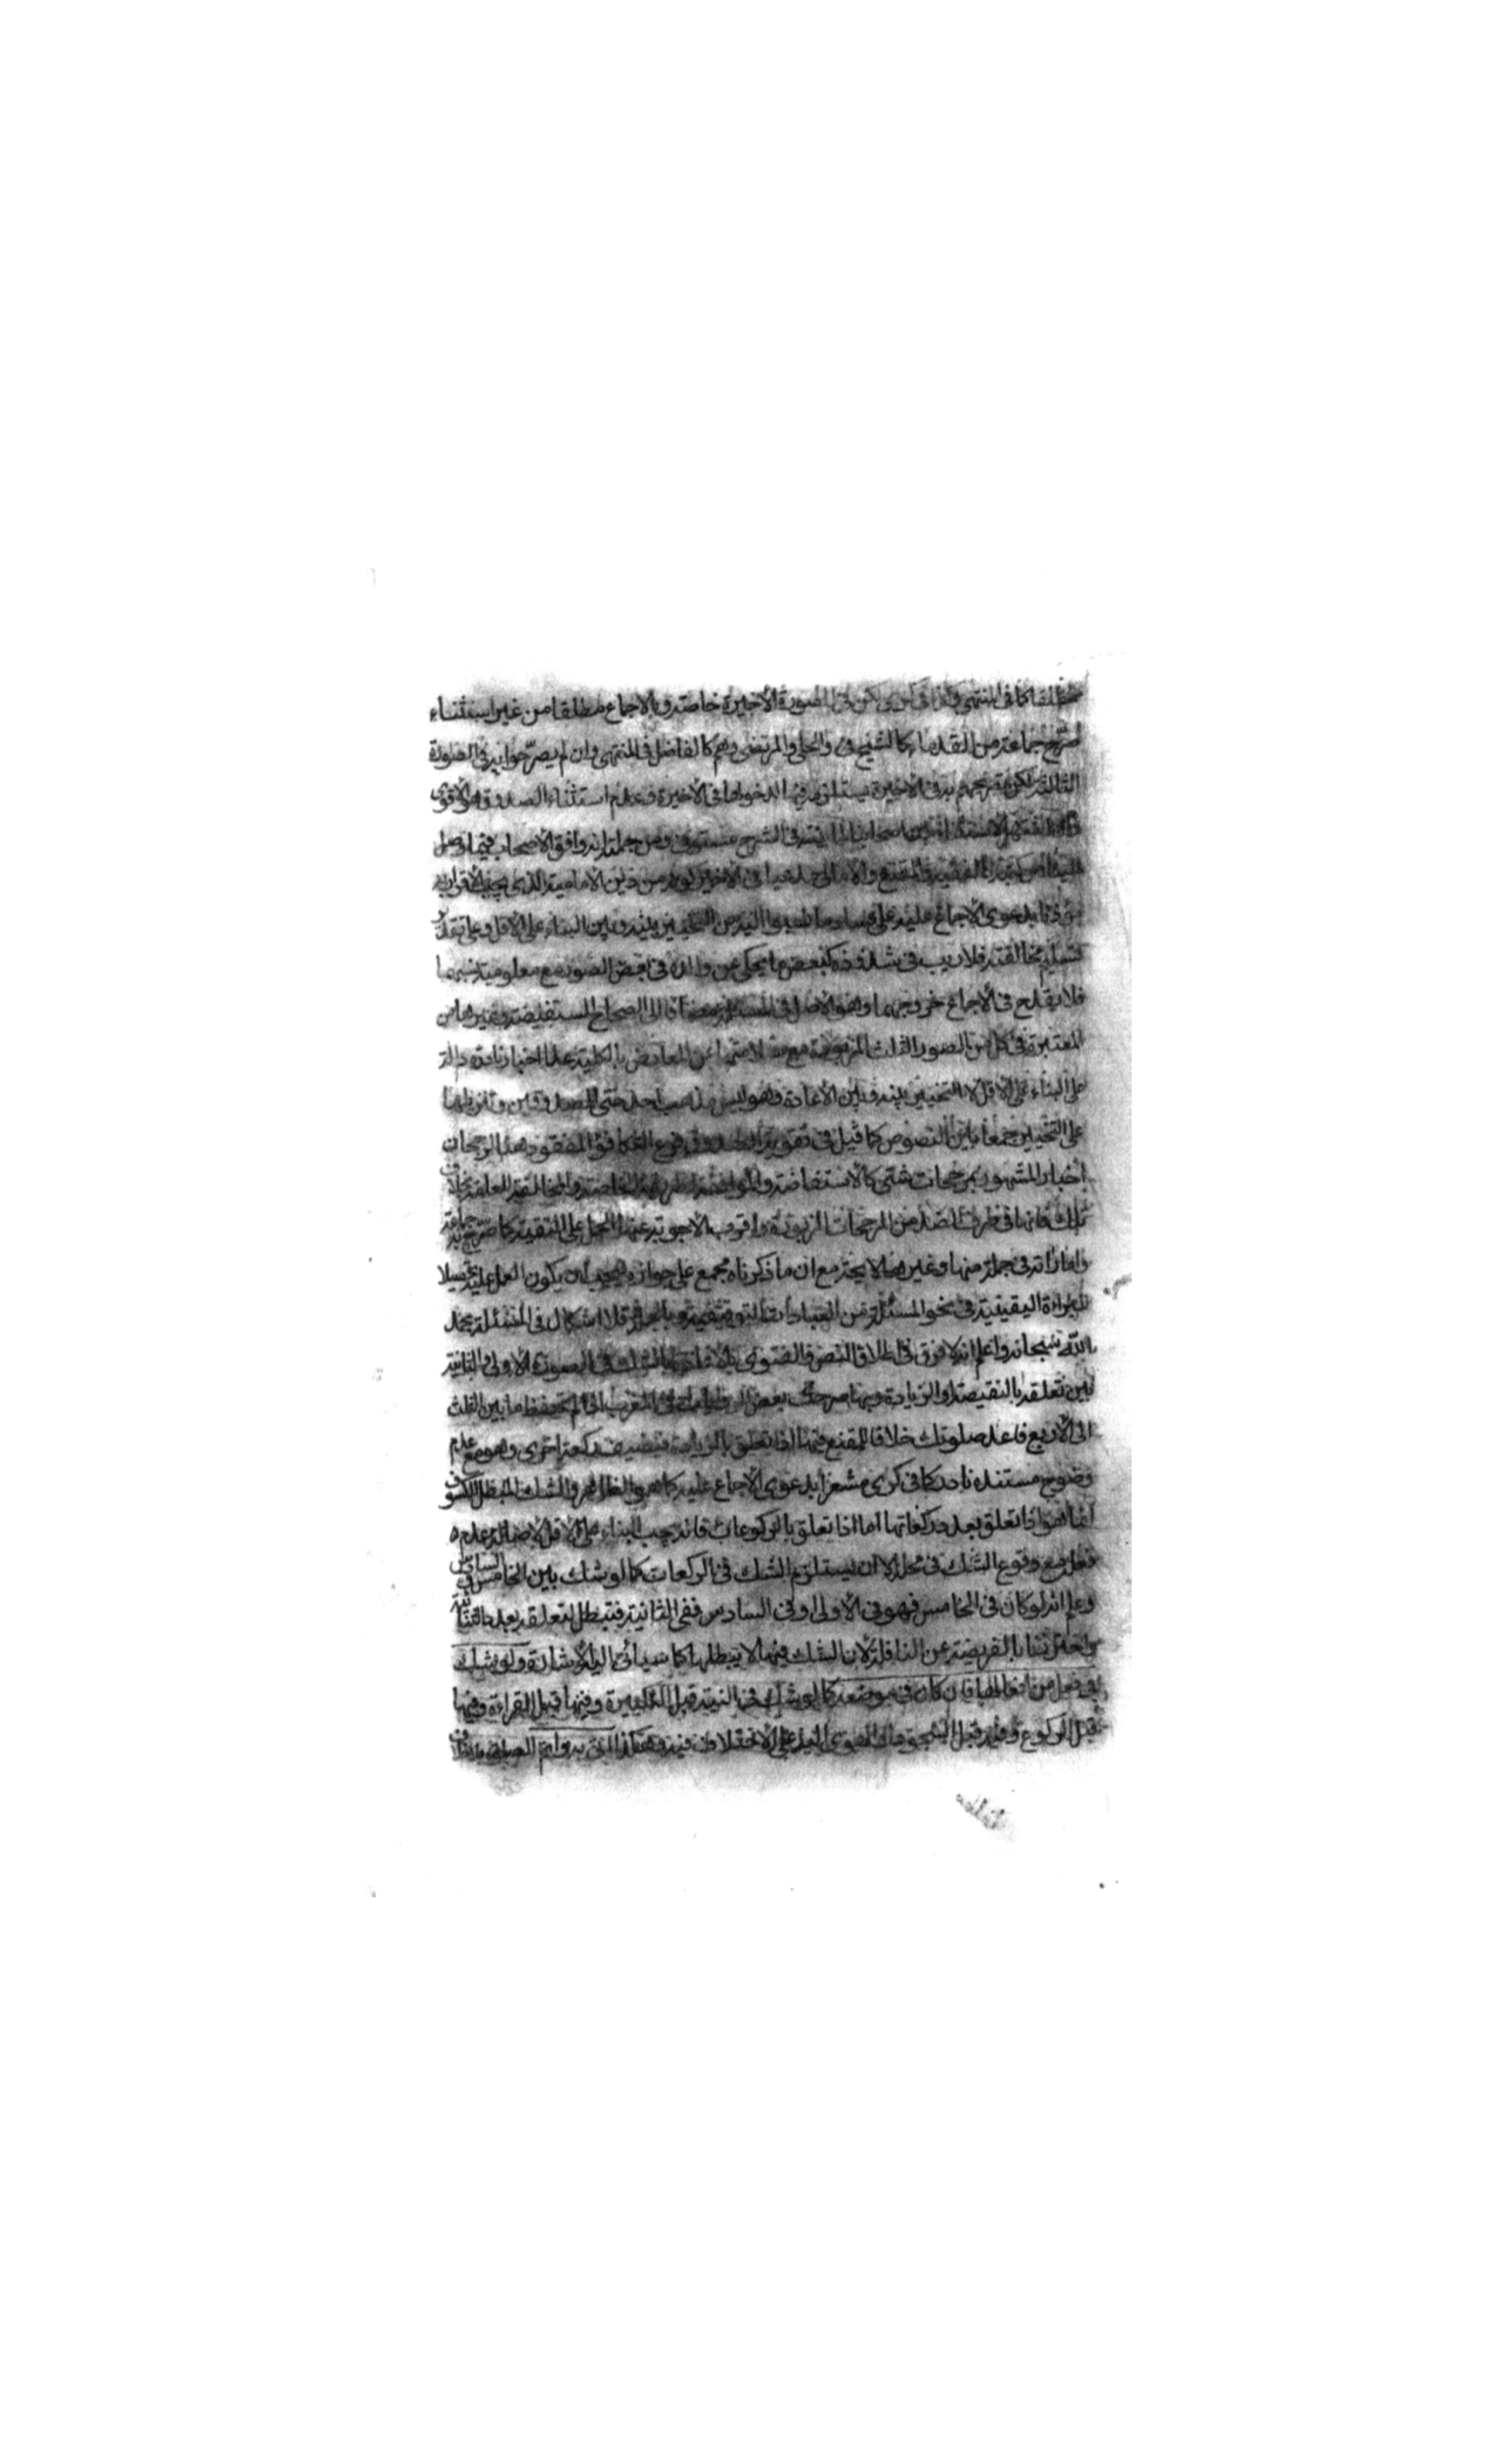 مطلقا كما فى المنتهى وكذا فى كرى لكن فى الصورة الأخيرة خاصة وبالاجماع مطلقا من غير استثناء
صرّح جماعة من القدماء كالشيخ فى والحلى والمرتضى وهم كالفاضل فى المنتهى وان لم يصرّحوا به فى الصورة
الثالثة لكن تصريحهم به فى الأخيرة يستلزمه فيها لدخولها فى الأخيرة وعدم استثناء الصدوق هو الأقوى
اصحابنا لما بينته فى الشرح مستوفى ومن جملته انه وافق الاصحاب فيما وصل
الينا من كتبه كالفقيه والمقنع والأمالى جدّاً فى الأخير لكونه من دين الامامية الذى يجب الأقرار به
مؤذنا بدعوى الأجماع عليه على فساد ما نسبوا اليه من التخيير بينه وبين البناء على الأقل وعلى تقدير
تسليم مخالفته فلا ريب فى شذوذه كبعض ما يحكى عن والده فى بعض الصور مع معلومية نسبهما
فلا يقدح فى الأجماع خروجهما وهو الأصل فى المسئلة مضافا الى الصحاح المستفيضة وغيرها من
المعتبرة فى كل من الصور الثلث المزبورة مع سلامتها عن المعارض بالكلية عدا اخبار نادرة دالة
على البناء على الاقل لا التخيير بينه وبين الأعادة وهو ليس مذهب احد حتى الصدوقين وتنزيلها
على التخيير جمعا بين النصوص كما قيل فى تقوية الصدوق فرع التكافؤ المفقود هنا لرجحان
أخبار المشهور بمرجحات شتى كالاستفاضة والموافقة والمخالفة للعامة بخلاف
تلك فانها فى طرف الضد من المرجحات المزبورة واقرب الاجوبة عنها الحمل على التقية كما صرّح به جماعة
واماراته فى جملة منها وغيرها لايحة مع ان ما ذكرناه مجمع على جوازه فيجب ان يكون العمل عليه تحصيلا
للبراءة اليقينية فى نحو المسئلة من العبادات التوقيفية وبالجملة فلا اشكال فى المسئلة بحمد
الله سبحانه واعلم انه لا فرق فى اطلاق النص والفتوى بالاعادة بالشك فى الصورة الاولى والثانية
بين تعلقه بالنقيصة او الزيادة وبها صرحت بعض الروايات فى المغرب اذا لم تحفظ ما بين الثلث
الى الأربع فاعد صلوتك خلافا للمقنع فيها اذا تعلق بالزيادة فتضيف ركعة اخرى وهو مع عدم
وضوح مستنده نادر كما فى كرى مشعرا بدعوى الأجماع عليه كما هو الظاهر والشك المبطل للكسوف
انما هو اذا تعلق بعدد ركعاتها اما اذا تعلق بالركوعات فانه يجب البناء على الاقل لاصالة عدم
فعله مع وقوع الشك فى محله الا ان يستلزم الشك فى الركعات كما لو شك بين الخامس والسادس
وعلم انه لو كان فى الخامس فهو فى الأولى او فى السادس ففى الثانية فتبطل لتعلقه بعدد الثنائية
واحترزنا بالفريضة عن النافلة لأن الشك فيها لا يبطلها كما سيأتى اليه الأشارة ولو شك
فى فعل من افعالها فان كان فى موضعه كما لو شك فى النية قبل التكبيرة وفيها قبل القراءة وفيها
قبل الركوع وفيه قبل السجود او الهوى اليه على الاختلاف فيه وهكذا اتى به واتم الصلوة